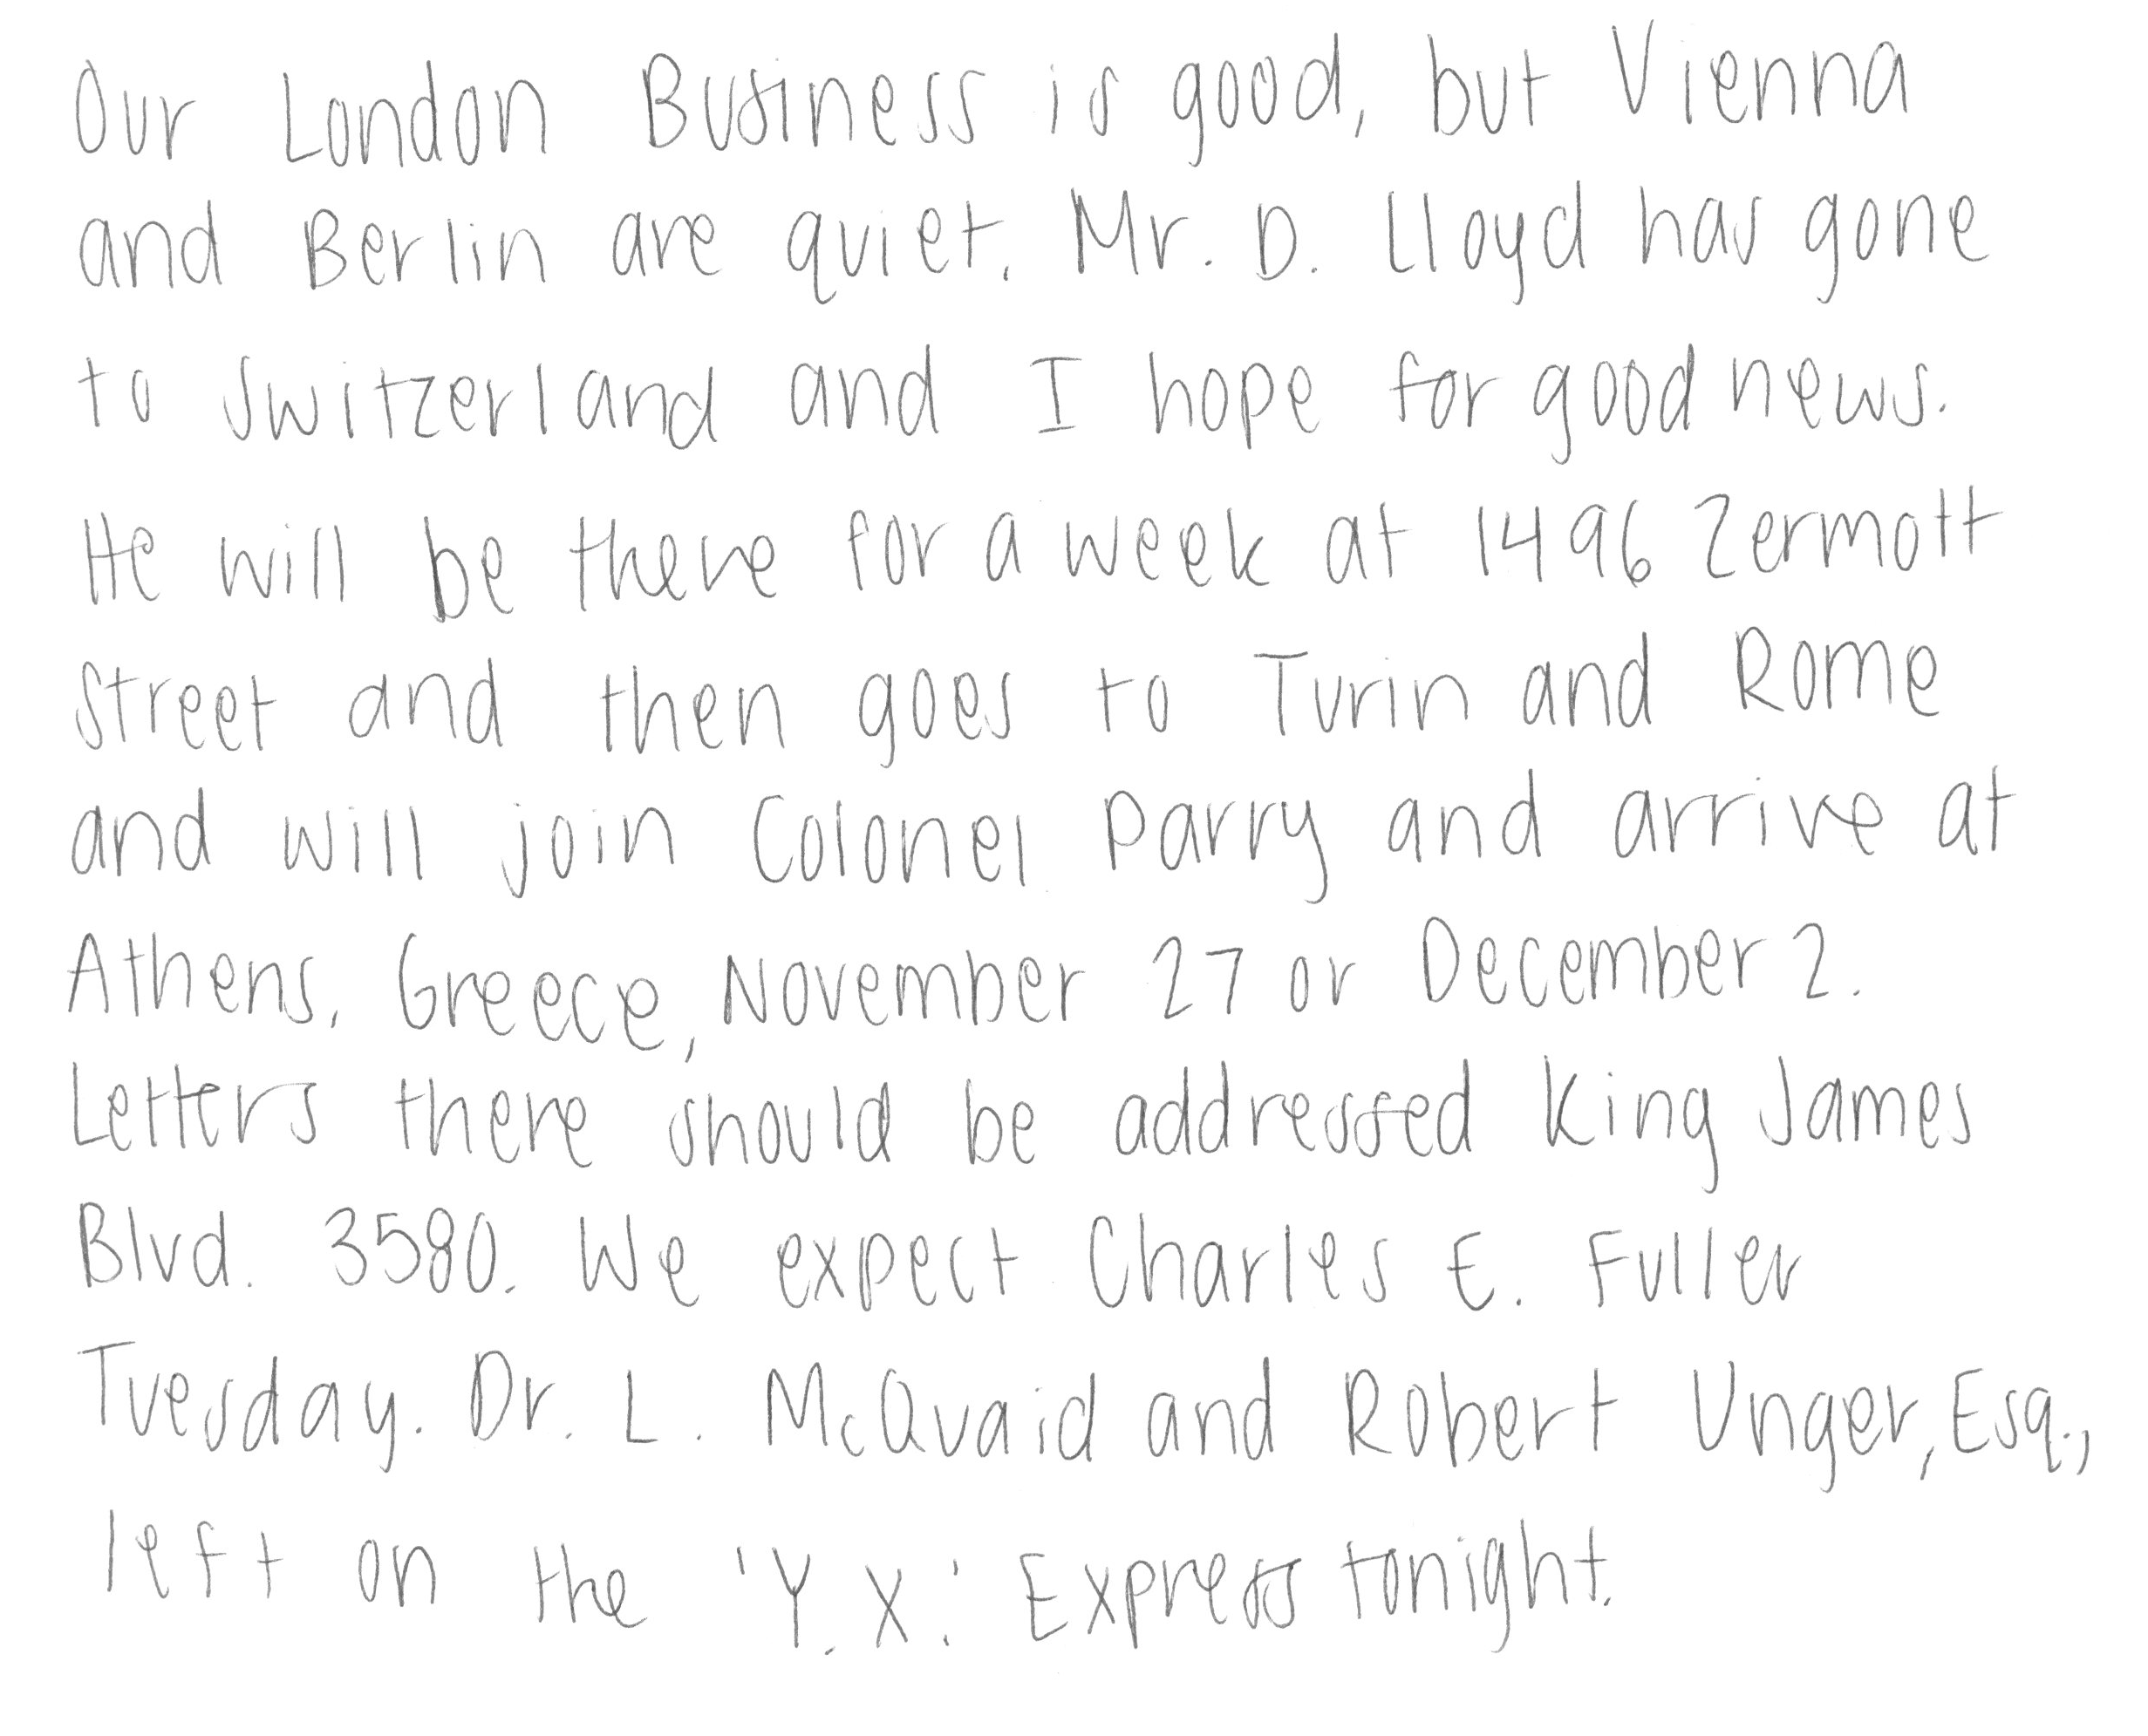 Our London Business is good, but Vienna
and Berlin are quiet. Mr. D. Lloyd has gone
to Switzerland and I hope for good news.
He will be there for a week at 1496 Zermott
Street and then goes to Turin and Rome
and will join Colonel Parry and arrive at
Athens, Greece, November 27 or December 2.
Letters there should be addressed King James
Blvd. 3580. We expect Charles E. Fuller
Tuesday. Dr. L. McQuaid and Robert Unger, Esq.,
left on the 'Y.X.' Express tonight.